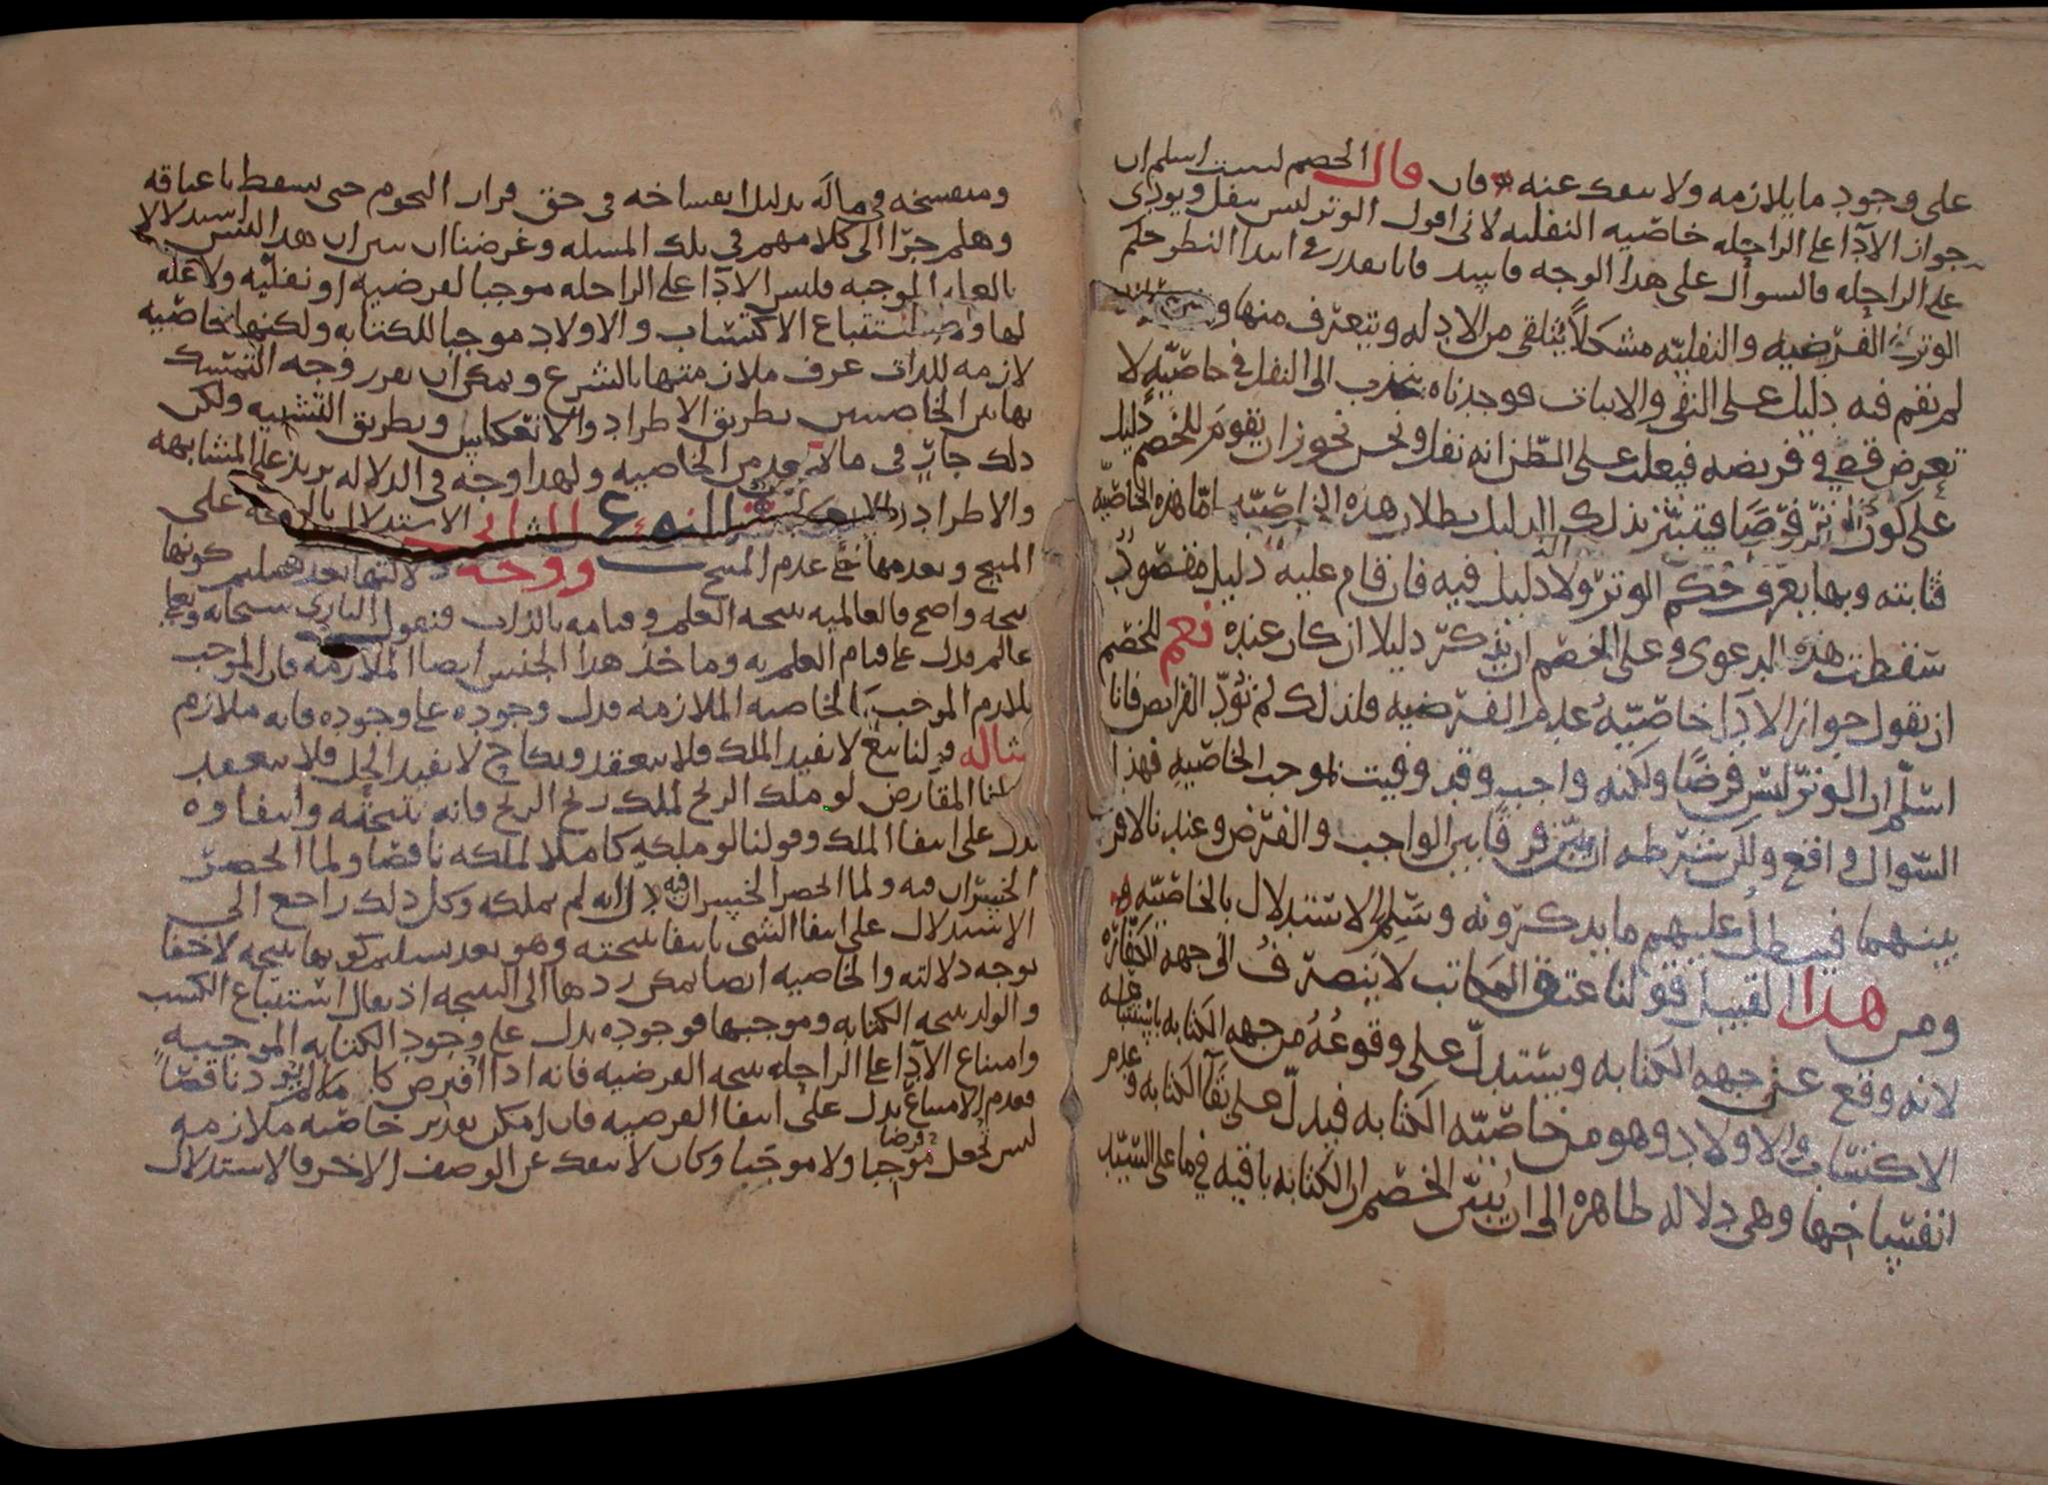 على وجود ما يلازمه ولا ينفك عنه فان قال الخصم لست اسلم ان
جواز الاداء على الراحله خاصيه النفليه لانى اقول الوتر ليس بنفل ويودى
على الراحله فالسوال على هذا الوجه فاسد فانا نقدر فى ابتدا النظر حكم
الوتر فى الفرضيه والنفليه مشكلا يتلقى من الادله ويتعرف منها و
لم نقم فيه دليل على النفى والاثبات فوجدناه ينجذب الى النفل فى خاصيه لا
تعرض قط فى فريضه فيغلب على الظن انه نفل ونحن نجوز ان يقوم للخصم دليل
على كون الوتر فرضا فيتبين بذلك الدليل بطلان هذه الخاصيه اما هذه الخاصيه
فثابته وبها يعرف حكم الوتر ولا دليل فيه فان قام عليه دليل مقصود
سقطت هذه الدعوى وعلى الخصم ان يذكر دليلا ان كان عنده نعم للخصم
ان يقول جواز الادا خاصيه عدم الفرضيه فلذلك لم تود الفرايض فانا
اسلم ان الوتر ليس فرضا ولكنه واجب وقد وفيت بموجب الخاصيه فهذا
السوال واقع ولكن شرطه ان يبين فرقا بين الواجب والفرض وعندنا لا فرق
بينهما فيبطل عليهم ما يذكرونه وسلم الاستدلال بالخاصيه
ومن هذا القبيل قولنا عتق المكاتب لا ينصرف الى جهه الكفاره
لانه وقع عن جهه الكتابه ويستدل على وقوعه من جهه الكتابه باستتباعه
الاكتساب والاولاد وهو من خاصيه الكتابه فيدل على بقا الكتابه وعدم
انفساخها وهى دلاله ظاهره الى ان يبين الخصم ان الكتابه باقيه فيما على السيد
ومنفسخه فى ماله بدليل انفساخه فى حق فوات النجوم حتى سقط باعتاقه
وهلم جرا الى كلامهم فى تلك المسله وغرضنا ان نبين ان هذا الجنس استدلالا
بالعله الموجبه فليس الادا على الراحله موجبا لفرضيه او نفليه ولا عله
لها ولا استتباع الاكتساب والاولاد موجبا للكتابه ولكنها خاصيه
لازمه للذات عرف ملازمتها بالشرع ويمكن ان نقرر وجه التمسك
بهاتين الخاصيتين بطريق الاطراد والانعكاس وبطريق التشبيه ولكن
ذلك جار فى ما لا يعد من الخاصيه ولهذا وجه فى الدلاله يزيد على المشابهه
والاطراد النوع الثانى الاستدلال بالنتيجه على
المنتج وبعدمها على عدم المنتج ووجه دلالتها بعد تسليم كونها
نتيجه واضح فالعالميه نتيجه العلم وقيامه بالذات فنقول البارى سبحانه وتعالى
عالم فدل على قيام العلم به وماخذ هذا الجنس ايضا الملازمه فان الموجب
يلازم الموجب الخاصيه الملازمه فدل وجوده على وجوده فانه ملازم
مثاله قولنا بيع لا يفيد الملك فلا ينعقد ونكاح لا يفيد الحل فلا ينعقد
قلنا المقارض لو ملك الربح لملك ربح الربح فانه نتيجته وانتفاوه
يدل على انتفا الملك وقولنا لو ملكه كاملا لملكه ناقصا ولما انحصر
الخسران فيه ولما انحصر الخسران فيه لانه لم يملكه وكل ذلك راجع الى
الاستدلال على انتفا الشى بانتفا نتيجته وهو بعد تسليم كونها نتيجه لا خفا
بوجه دلالته والخاصيه ايضا يمكن ردها الى النتيجه اذ يقال استتباع الكسب
والولد نتيجه الكتابه وموجبها فوجوده يدل على وجود الكتابه الموجبه
وامتناع الادا على الراحله نتيجه الفرضيه فانه اذا افترض كاملا لم يود ناقصا
فعدم الامتناع يدل على انتفا الفرضيه فان امكن تقدير خاصيه ملازمه
ليس يجعل موجبا ولا موجبا وكان لا ينفك عن الوصف الاخر فالاستدلال